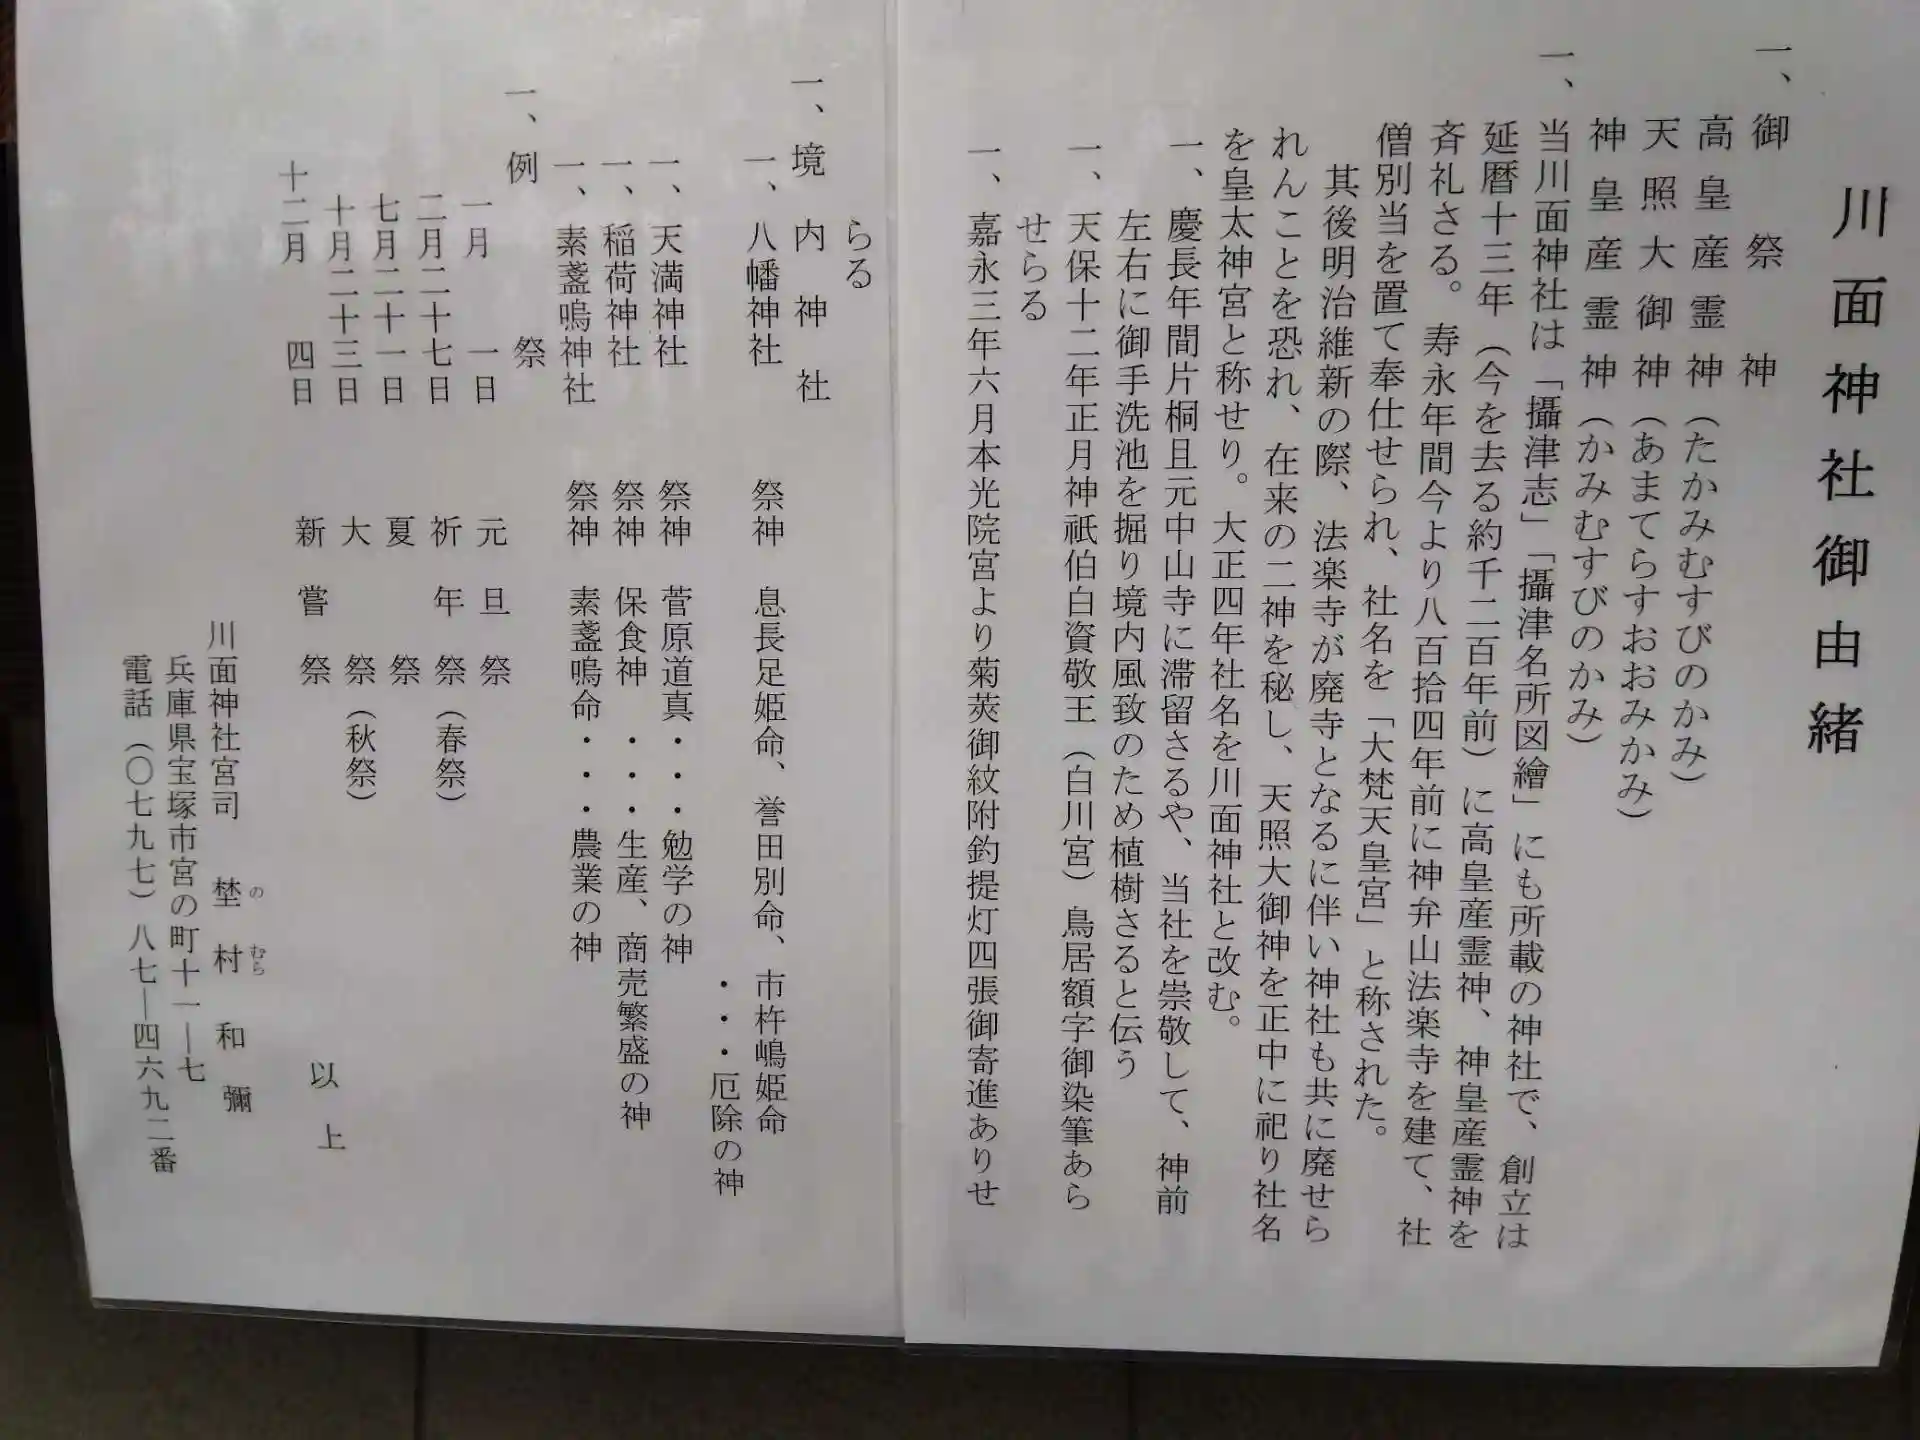 川面神社御由緒
一、御祭神
高皇産霊神（たかみむすびのかみ）
天照大御神（あまてらすおおみかみ）
神皇産霊神（かみむすびのかみ）
一、当川面神社は「攝津志」「攝津名所図繪」にも所載の神社で、創立は
延暦十三年（今を去る約千二百年前）に高皇産霊神、神皇産霊神を
斉礼さる。寿永年間今より八百拾四年前に神弁山法楽寺を建て、社
僧別当を置て奉仕せられ、社名を「大梵天皇宮」と称された。
其後明治維新の際、法楽寺が廃寺となるに伴い神社も共に廃せら
れんことを恐れ、在来の二神を秘し、天照大御神を正中に祀り社名
を皇太神宮と称せり。大正四年社名を川面神社と改む。
一、慶長年間片桐且元中山寺に滞留さるや、当社を崇敬して、神前
左右に御手洗池を掘り境内風致のため植樹さると伝う
一、天保十二年正月神祇伯白資敬王（白川宮）鳥居額字御染筆あら
せらる
一、嘉永三年六月本光院宮より菊莢御紋附釣提灯四張御寄進ありせ
らる
一、境内神社
一、八幡神社　祭神　息長足姫命、誉田別命、市杵嶋姫命
・・・厄除の神
一、天満神社　祭神　菅原道真・・・勉学の神
一、稲荷神社　祭神　保食神　・・・生産、商売繁盛の神
一、素盞嗚神社　祭神　素盞嗚命・・・農業の神
一、例祭
一月　一日　元旦祭
二月二十七日　祈年祭（春祭）
七月二十一日　夏祭
十月二十三日　大祭（秋祭）
十二月　四日　新嘗祭
以上
川面神社宮司　埜村和彌
の　むら
兵庫県宝塚市宮の町十一―七
電話（〇七九七）八七―四六九二番